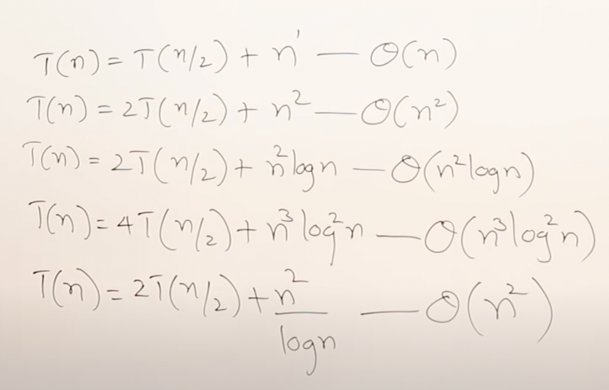 T(n) = T(n/2) + n¹ — O(n)
T(n) = 2T(n/2) + n² — O(n²)
T(n) = 2T(n/2) + n² log n — O(n² log n)
T(n) = 4T(n/2) + n³ log² n — O(n³ log² n)
T(n) = 2T(n/2) + n²/log n — O(n²)